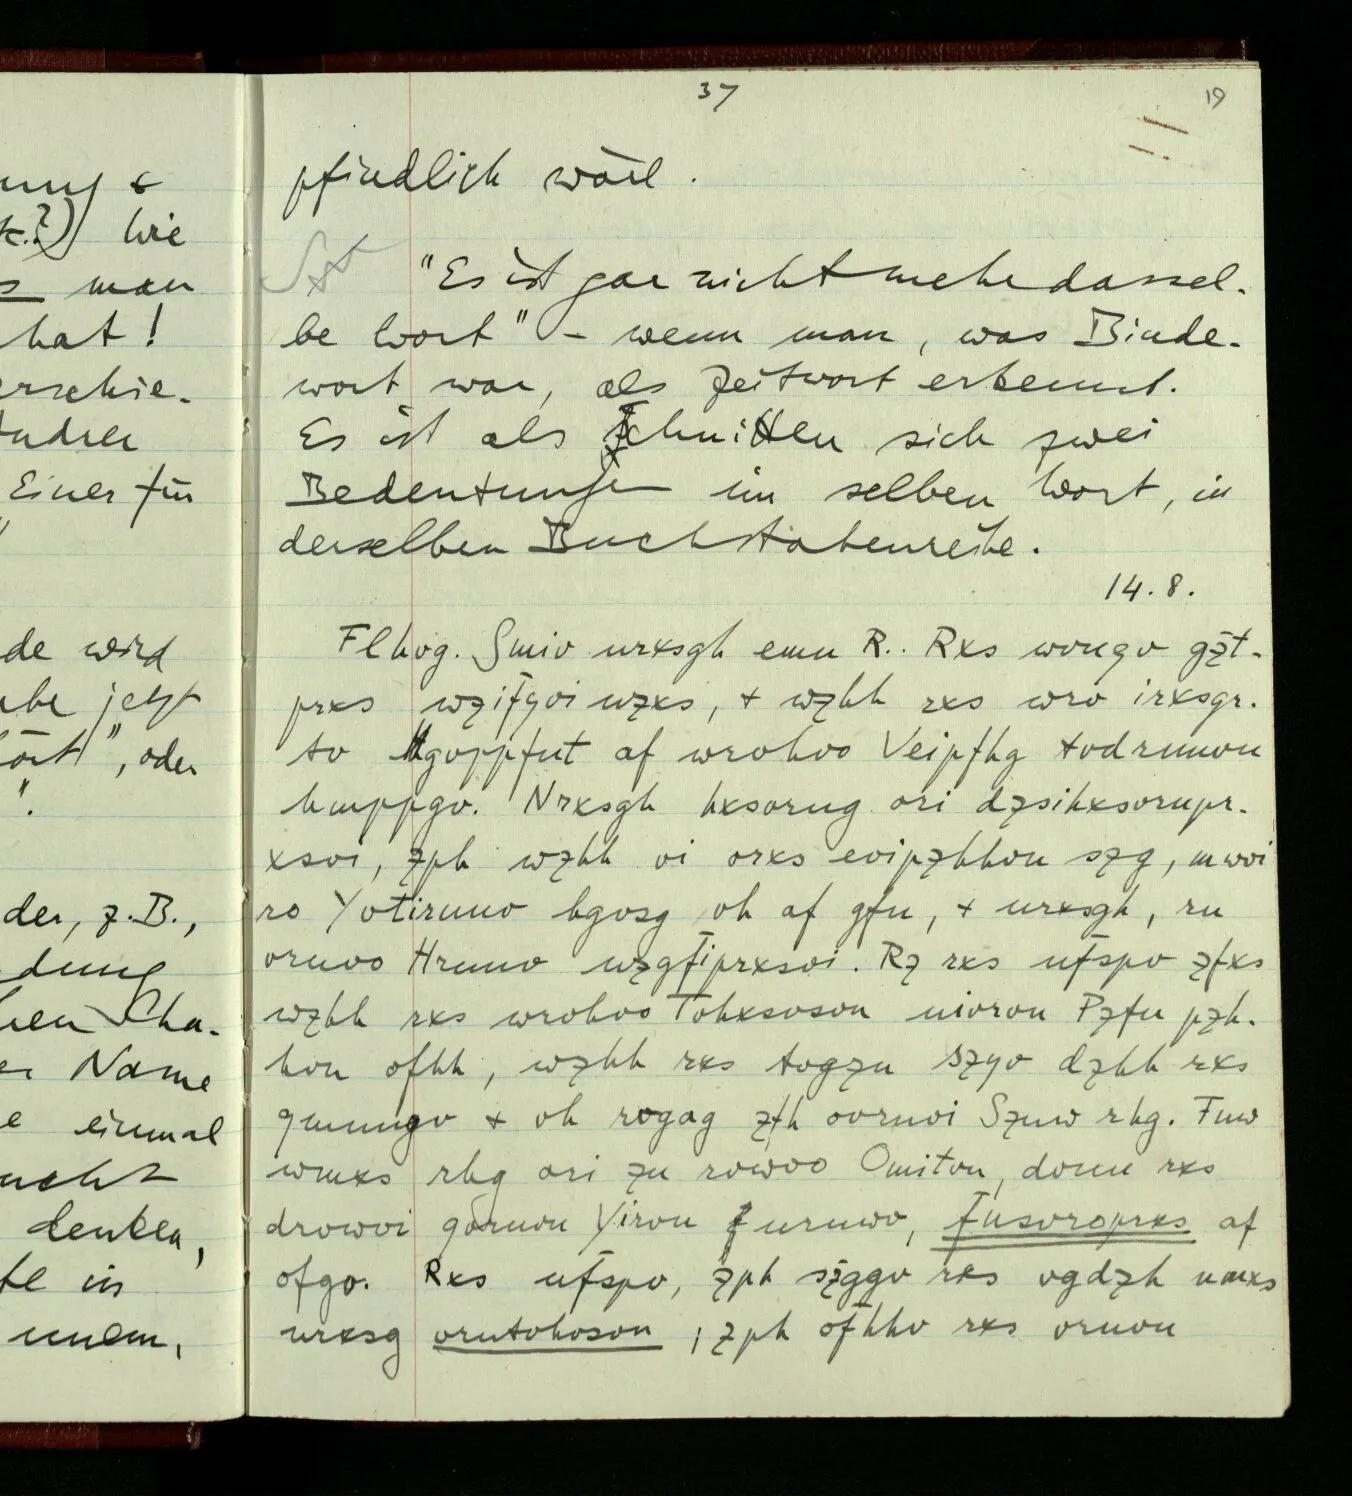 37
19
nung &
k.?) wie
s man
hat!
erschie-
Andrer
Einer für
de wird
abe jetzt
ört", oder
".
der, z.B.,
dung
hen Cha-
er Name
e einmal
ucht
denken,
te in
unem,
pfindlich wäre.
"Es ist gar nicht mehr dassel-
be Wort" – wenn man, was Binde-
wort war, als Zeitwort erkennt.
Es ist als schnitten sich zwei
Bedeutungen im selben Wort, in
derselben Buchstabenreihe.
14.8.
Flhog. Smiv nrxsgh emn R.. Rxs wvngv gz̈t-
prxs wzif̈yvi wzxs, & wzhh rxs wrv irxsgr-
tv goppfnt af wrohvo Veipfhg tvdrnnvn
hmppgv. Nrxsgh hxsorng ori dzsihxsornpr-
xsvi, zph wzhh vi orxs evipzhhvn szg, mwvi
ro Yvtirnnv hgosg oh af gfn, & nrxsgh, rn
ornvo Hrnnv nzgf̈iprxsvi. Rz rxs nf̈spv zfxs
wzhh rxs wrohvo Tohxsvson nivrvn Pzfn pzh-
hvn ofhh, wzhh rxs tvgzn szyv dzhh rxs
qmnngv & oh rvgag zfh ovrnvi Sznw rhg. Fnw
wmxs rhg ori zn rowvo Omitvn, dvnn rxs
drowvi görnvn Yirvu urnwv, f̈nsvroprxs af
ofgv. Rxs nf̈spv, zph sz̈ggv rxs vgdzh nmxs
nrxsg orntohoson, ; zph of̈hhv rxs ornvn